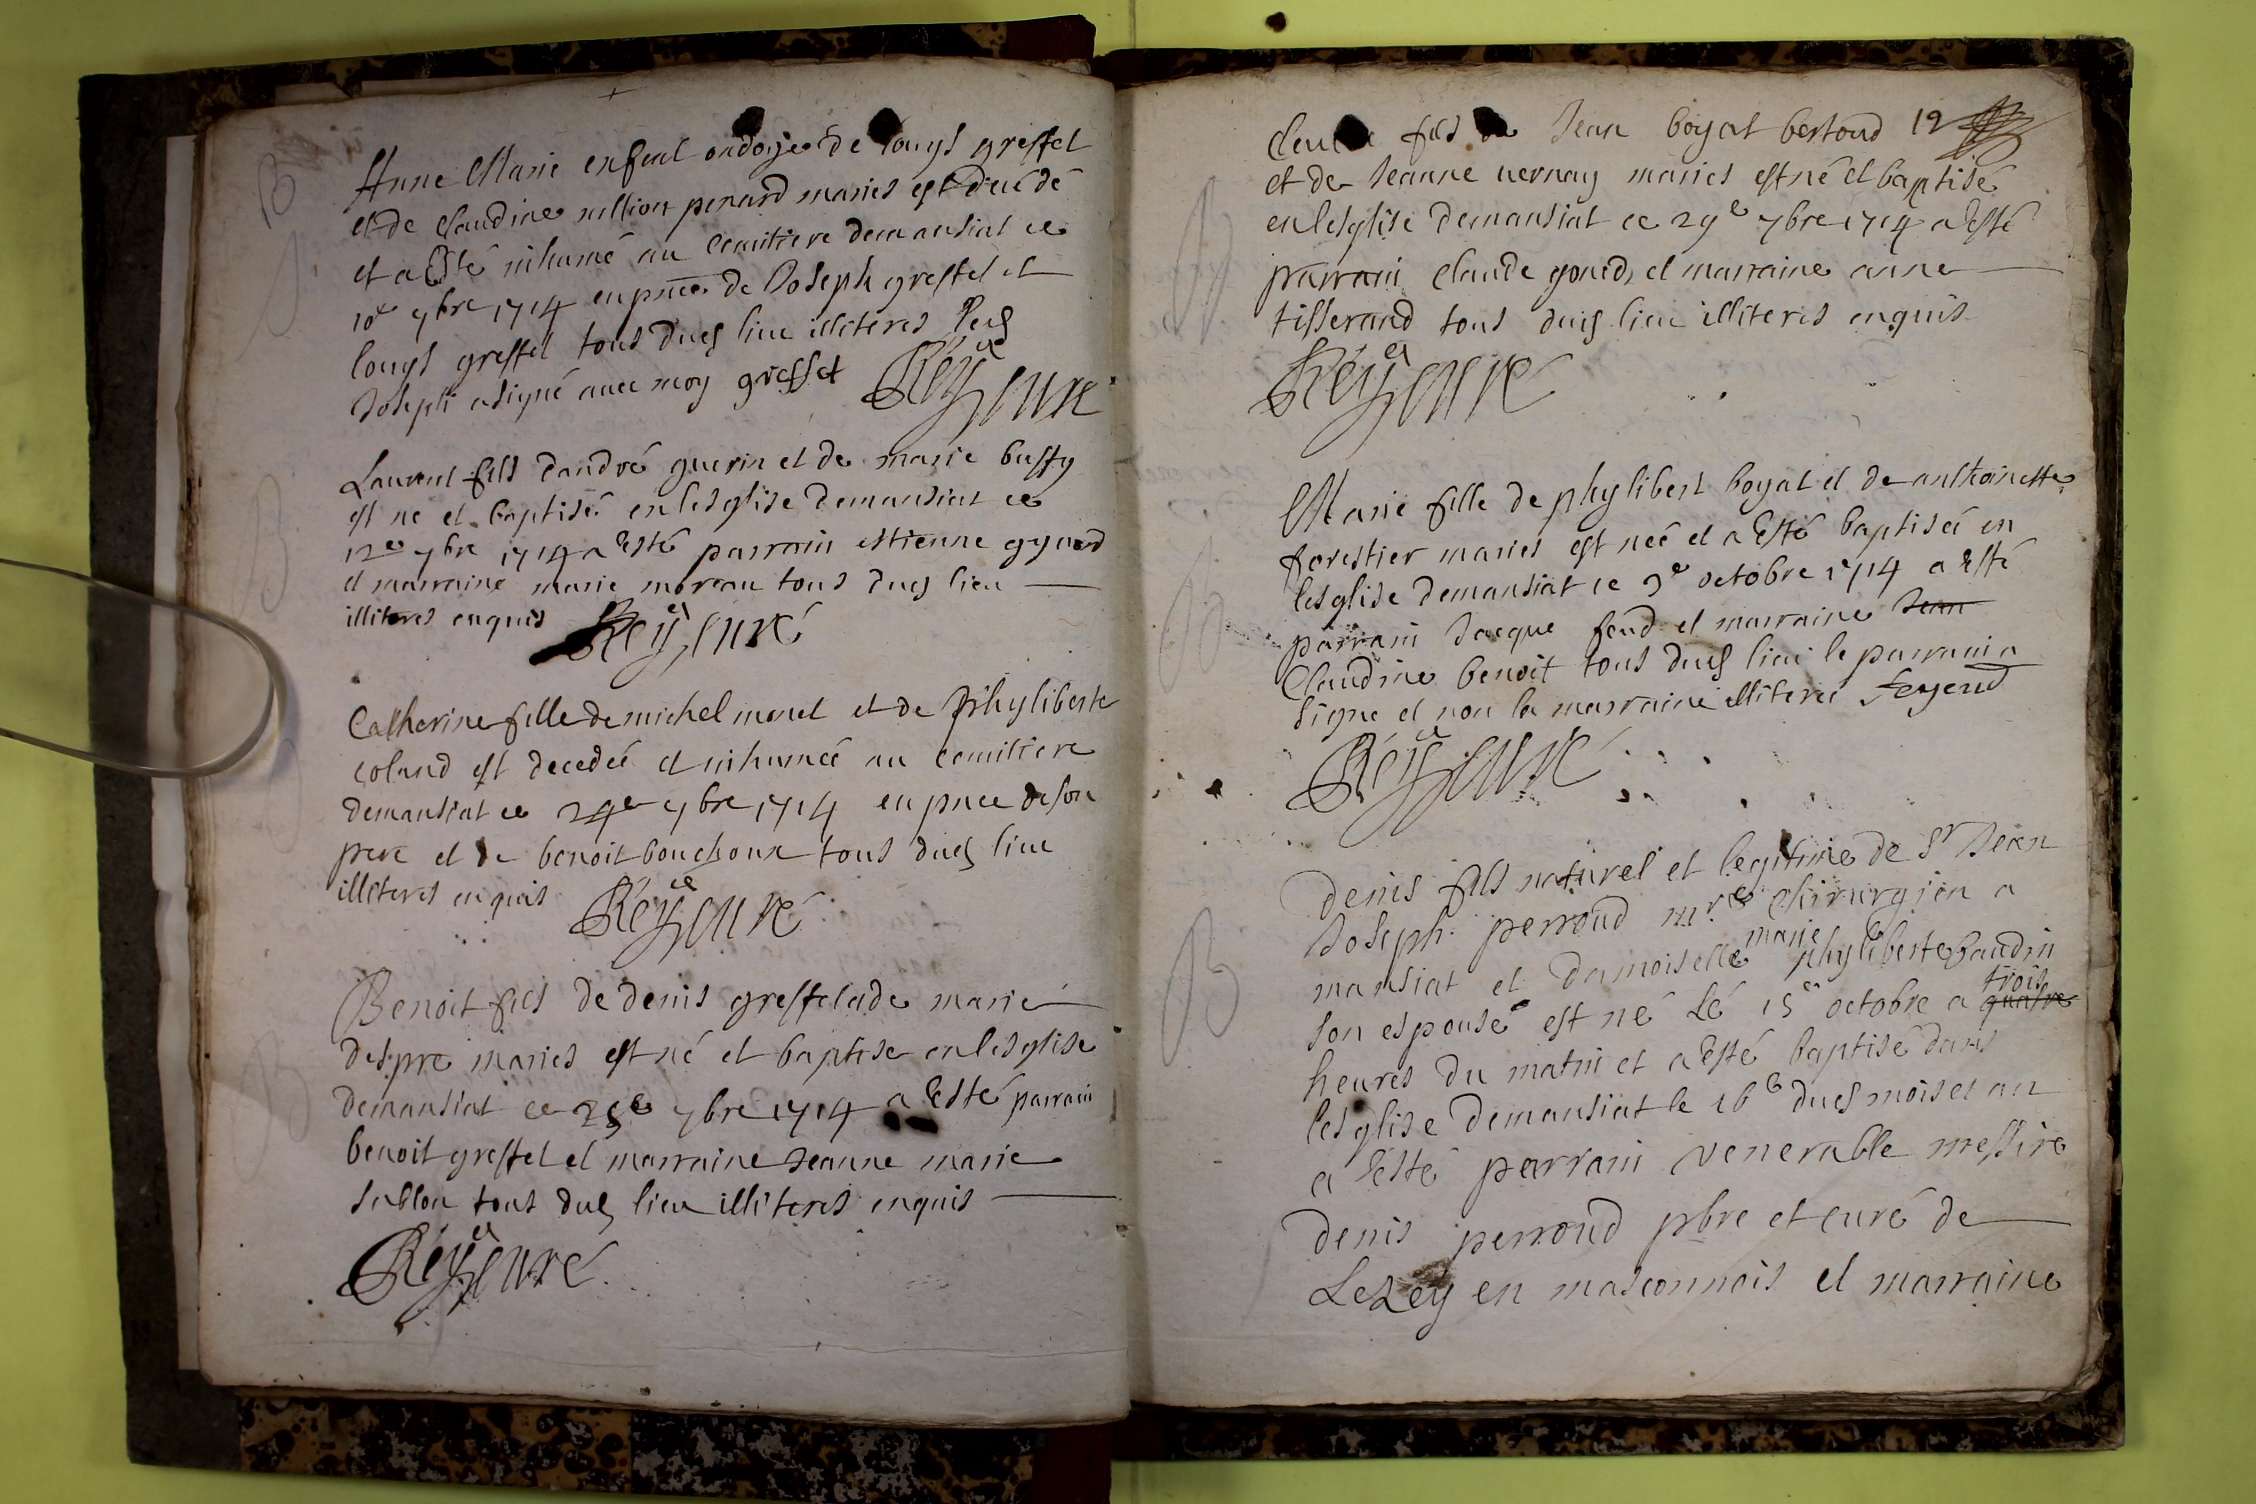 Anne Marie enfent ondoyée de louys greffet
et de Claudine million penard mariés est décédé
et a Esté inhumé au Cemitiere demansiat ce
10e 7bre 1714 en pnce de Joseph greffet et
louys greffet tous dud lieu illiteres led
Joseph a signé avec moy greffet Réy curé
Laurent fils dandré guerin et de marie buffy
est ne et baptisé en lesglise demansiat ce
12e 7bre 1714 a Esté parrain estienne
et marraine marie moreau tous dud lieu
illiteres enquis Réy curé
Catherine fille de michel monet et de Phyliberte
coland est decedeé et inhumeé au cemitiere
demansiat ce 24e 7bre 1714 en pnce de son
pere et de benoit bouchoux tous dud lieu
illiteres enquis Réy curé
Benoit fils de denis greffet et de marie
despre mariés est né et baptise en lesglise
demansiat ce 25e 7bre 1714 a Esté parrain
benoit greffet et marraine Jeanne marie
sublon tous dud lieu illiteres enquis
Réy curé
fils de Jean boyat bertoud 12
et de Jeanne vernay mariés est né et baptisé
en lesglise demansiat ce 29e 7bre 1714 a Esté
parrain Claude gonod et marraine anne
tisserand tous dud lieu illiteres enquis
Réy curé
Marie fille de phylibert boyat et de anthoinette
forestier mariés est neé et a Esté baptiseé en
lesglise demansiat ce 9e octobre 1714 a Esté
parrain Jacque feud et marraine Jean
Claudine benoit tous dud lieu le parrain a
signé et non la marraine illiteree feyeud
Réy curé
Denis fils naturel et legitime de Sr Jean
Joseph perroud mre Chirurgien a
mansiat et Damoiselle marie phyliberte baudin
son espouse est né Lé 15e octobre a quatre trois
heures du matin et a Esté baptisé dans
lesglise demansiat le 16e dud mois et an
a Esté parrain venerable messire
denis perroud pbre et curé de
en masconnois et marraine